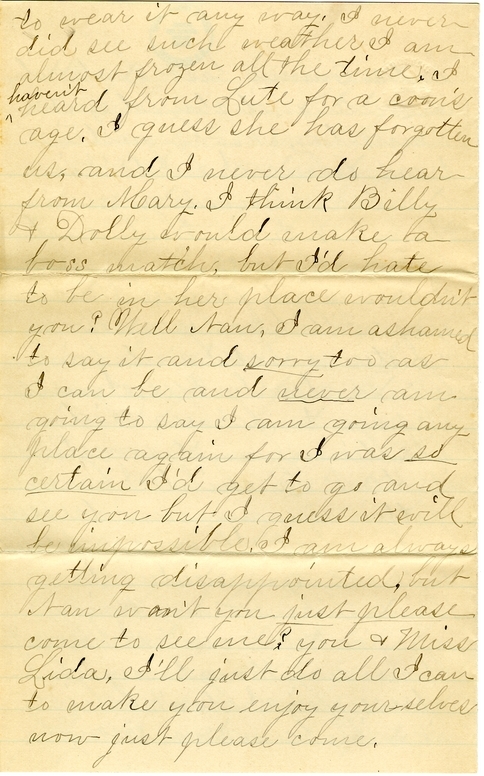 to wear it any way. I never
did see such weather I am
almost frozen all the time. I
haven't
heard from Lute for a coon's
age. I guess she has forgotten
us, and I never do hear
from Mary. I think Billy
& Dolly would make a
boss match, but I'd hate
to be in her place wouldn't
you? Well Nan, I am ashamed
to say it and sorry too as
I can be and never am
going to say I am going any
place again for I was so
certain I'd get to go and
see you but I guess it will
be impossible. I am always
getting disappointed, but
Nan won't you just please
come to see me? you & Miss
Lida, I'll just do all I can
to make you enjoy yourselves
now just please come.